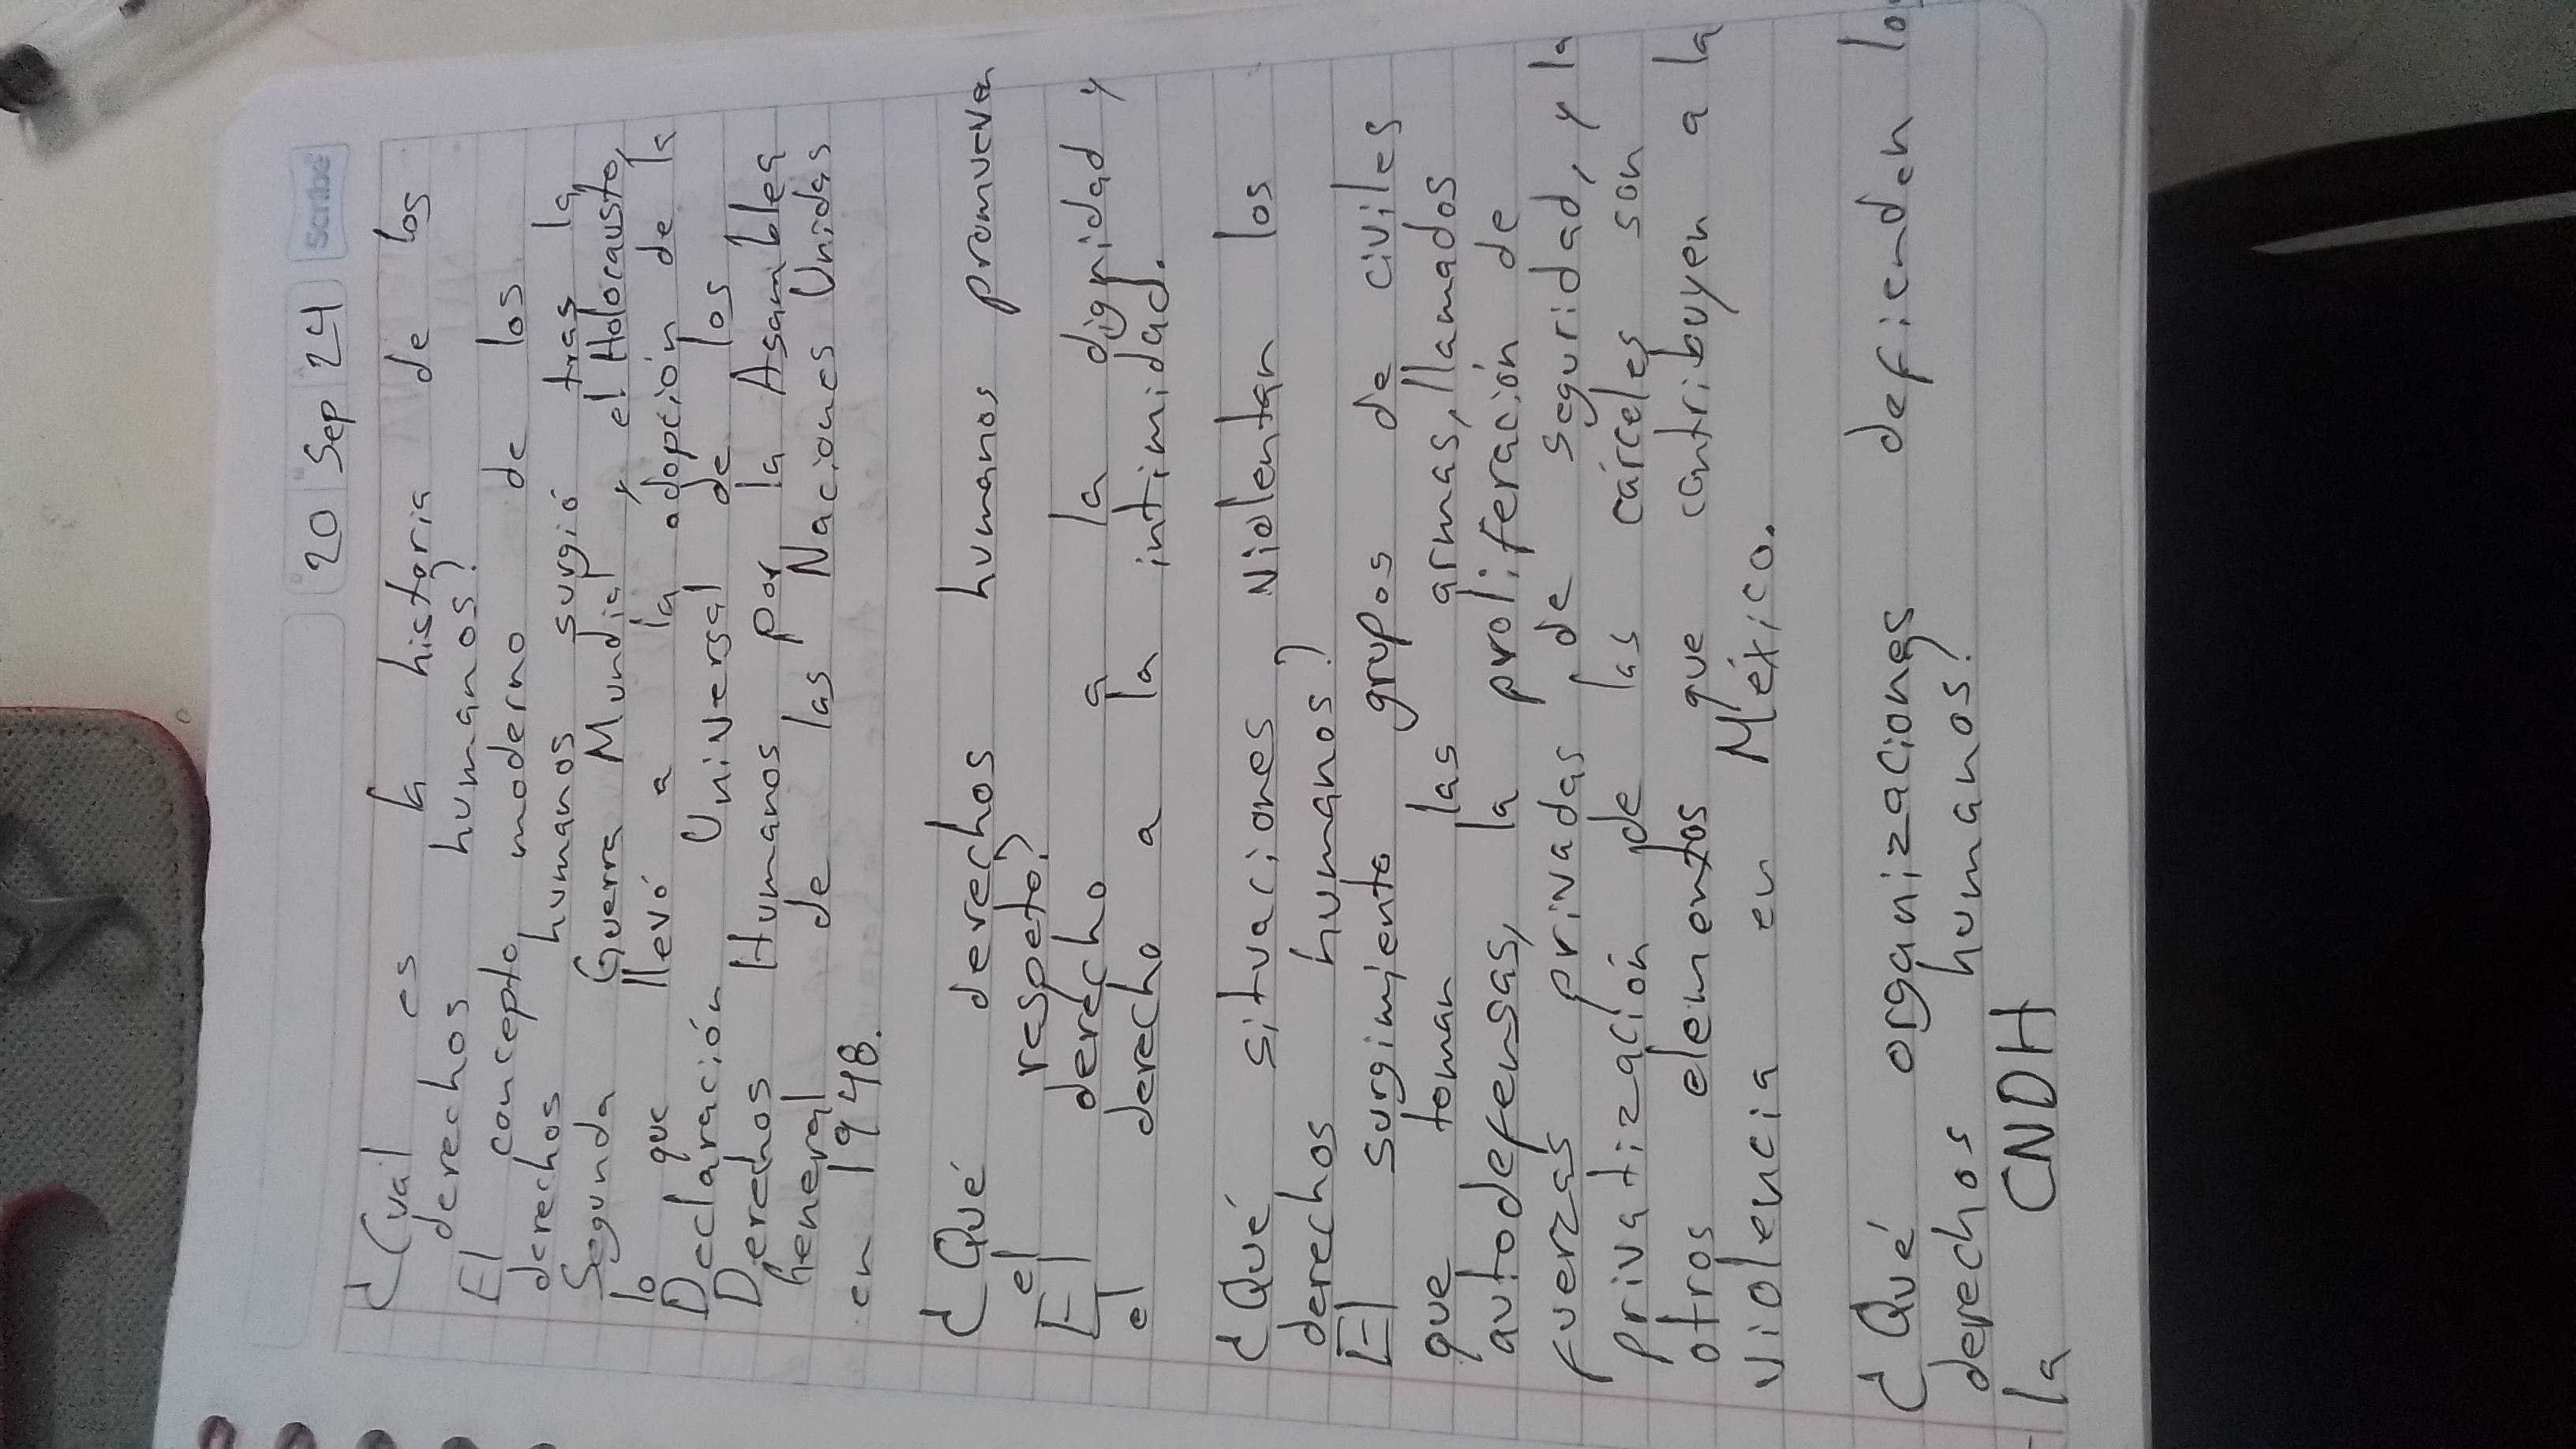 20 Sep 24 Scribe
¿Cual es la historia de los
derechos humanos?
El concepto moderno de los
derechos humanos surgió tras la
Segunda Guerra Mundial y el Holocausto,
lo que llevó a la adopción de la
Declaración Universal de los
Derechos Humanos por la Asamblea
heneral de las Naciones Unidas
en 1948.
¿Qué derechos humanos promueven
el respeto?
El derecho a la dignidad y
el derecho a la intimidad.
¿Qué situaciones violentan los
derechos humanos?
El surgimiento grupos de civiles
que toman las armas, llamados
autodefensas, la proliferación de
fuerzas privadas de seguridad, y la
privatización de las cárceles son
otros elementos que contribuyen a la
violencia en México.
¿Qué organizaciones defienden los
derechos humanos?
la CNDH